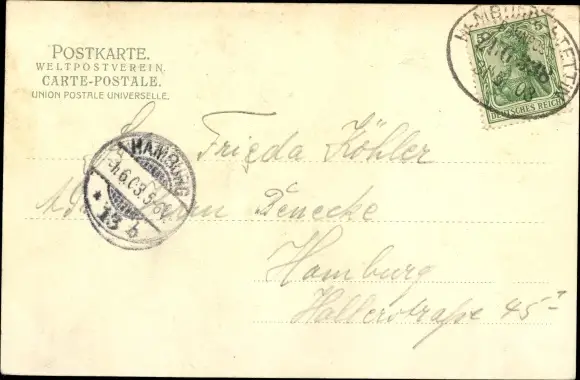 POSTKARTE.
WELTPOSTVEREIN.
CARTE-POSTALE.
UNION POSTALE UNIVERSELLE.
DEUTSCHES REICH
HAMBURG
1.6.03.
* 13 b
Frieda Köhler
Benecke
Hamburg
Hallerstraße 45